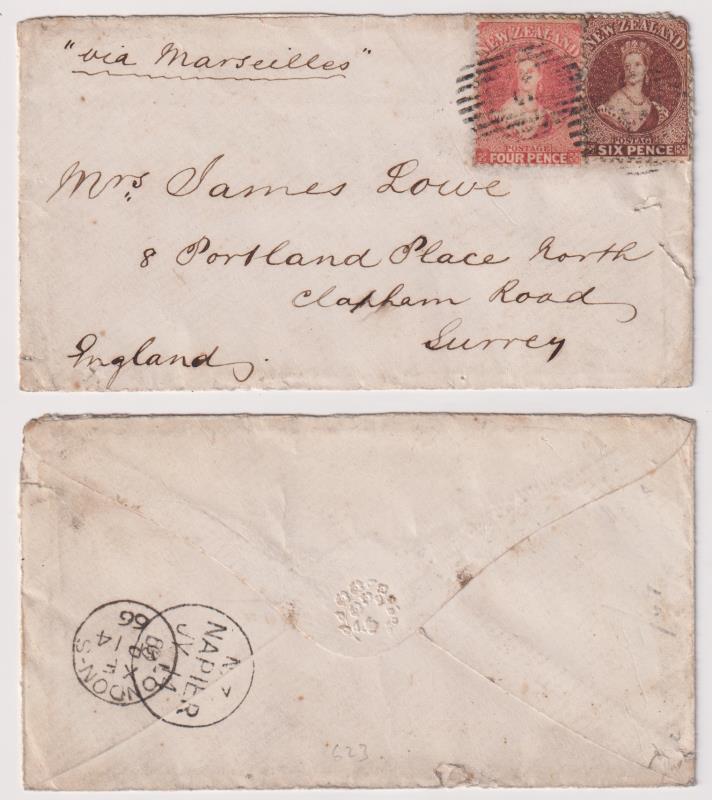 "via Marseilles"
NEW ZEALAND
POSTAGE
FOUR PENCE
NEW ZEALAND
POSTAGE
SIX PENCE
Mrs James Lowe
8 Portland Place North
Clapham Road
Surrey
England.
N Z
NAPIER
JY 14
LONDON-S
14
66
623